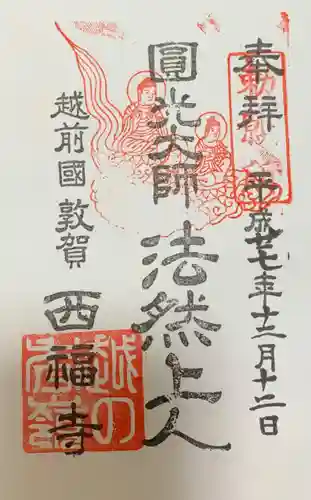 奉拝 平成廿七年十二月十二日
圓光大師 法然上人
越前國 敦賀
西福寺